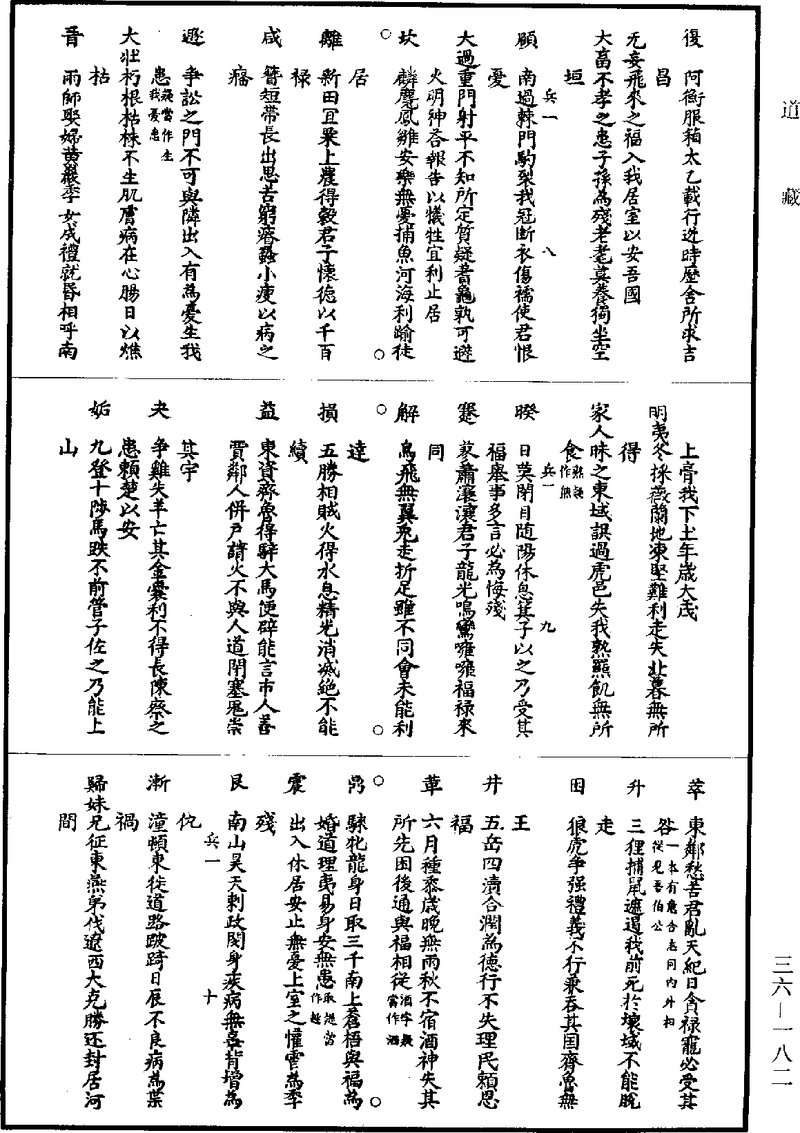 道藏
復 阿衡服箱太乙載行迯時歷舍所求吉
昌
无妄飛來之福入我居室以安吾國
大畜不孝之患子孫為殘老耄莫養獨坐空
垣
兵一 八
頤 南過棘門鈎裂我冠斷衣傷襦使君恨
憂
大過重門射平不知所定質疑蓍龜孰可避
火明神答報告以犧牲宜利止居
坎 麟麑鳳雛安樂無憂捕魚河海利踰徒
居
離 新田宜粟上農得穀君子懷德以千百
祿
咸 簪短帶長出思苦窮瘠蠡小瘦以病之
癃
遯 爭訟之門不可與隣出入有為憂生我
患 疑當作生我憂患
大壯朽根枯株不生肌膚病在心腸日以燋
枯
晉 雨師娶婦黃巖季女成禮就昏相呼南
上膏我下土年歲大茂
明夷冬採薇蘭地凍堅難利走失北暮無所
得
家人昧之東域誤過虎邑失我熟羆飢無所
食 熟疑作熊
兵一 九
睽 日莫閉目隨陽休息箕子以之乃受其
福舉事多言必為悔殘
蹇 蓼蕭瀼瀼君子龍光鳴鸞噰噰福祿來
同
解 鳥飛無翼兎走折足雖不同會未能利
達
損 五勝相賊火得水息精光消滅絶不能
續
益 東資齊魯得騂大馬便辟能言市人善
賈鄰人併戶請火不與人道閉塞鬼祟
其宇
夬 爭雞失羊亡其金囊利不得長陳蔡之
患賴楚以安
姤 九登十陟馬跌不前管子佐之乃能上
山
萃 東鄰愁苦君亂天紀日貪祿寵必受其
咎 一本有意合志同內外相從見吾伯公
升 三貍捕鼠遮遏我前死於壞域不能脫
走
困 狼虎爭强禮義不行兼吞其國齊魯無
王
井 五岳四瀆合潤為德行不失理民賴恩
福
革 六月種黍歲晚無雨秋不宿酒神失其
所先困後通與福相從 酒字疑當作洒
鼎 騋牝龍身日取三千南上蒼梧與福為
婚道理夷易身安無患 取疑當作趣
震 出入休居安止無憂上室之懽雪為季
殘
艮 南山昊天剌政閔身疾病無辜背增為
仇
兵一 十
漸 潼頓東徙道路跛踦日辰不良病為祟
禍
歸妹兄征東燕弟伐遼西大克勝還封居河
間
三六—一八二